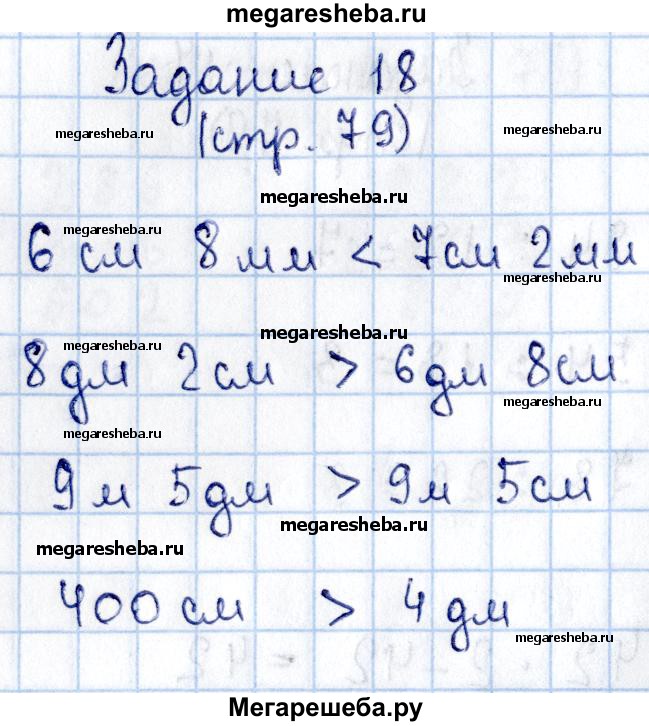 megaresheba.ru
Задание 18
megaresheba.ru
megaresheba.ru
(стр. 79)
megaresheba.ru
megaresheba.ru
6 см 8 мм < 7 см 2 мм
megaresheba.ru
megaresheba.ru
megaresheba.ru
8 дм 2 см > 6 дм 8 см
megaresheba.ru
megaresheba.ru
9 м 5 дм > 9 м 5 см
megaresheba.ru
megaresheba.ru
400 см > 4 дм
megaresheba.ru
Мегарешеба.ру